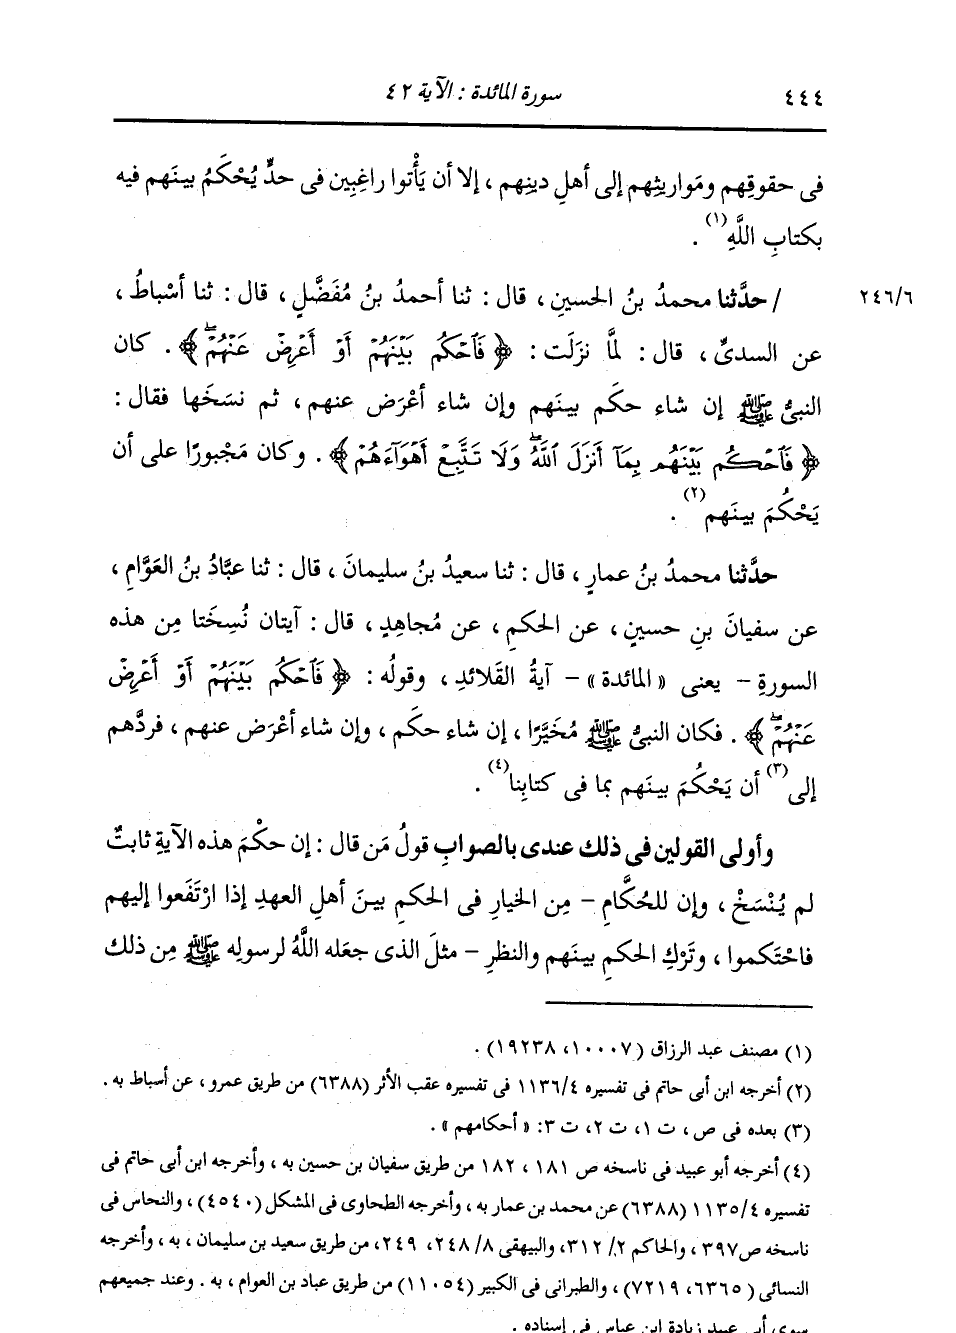 ٤٤٤
سورة المائدة : الآية ٤٢
فى حقوقِهم ومَواريثِهم إلى أهلِ دينِهم ، إلا أن يَأْتوا راغِبين فى حدٍّ يُحْكَمُ بينَهم فيه
بكتابِ اللَّهِ(١) .
٢٤٦/٦
/ حدَّثنا محمدُ بنُ الحسينِ ، قال : ثنا أحمدُ بنُ مُفَضَّلٍ ، قال : ثنا أسْباطُ ،
عن السدىِّ ، قال : لمَّا نزَلَت : ﴿ فَٱحْكُم بَيْنَهُمْ أَوْ أَعْرِضْ عَنْهُمْ ۖ﴾ . كان
النبىُّ ﷺ إن شاء حكَم بينَهم وإن شاء أعْرَض عنهم ، ثم نسَخَها فقال :
﴿ فَٱحْكُم بَيْنَهُم بِمَآ أَنزَلَ ٱللَّهُ ۖ وَلَا تَتَّبِعْ أَهْوَآءَهُمْ ﴾ . وكان مَجْبورًا على أن
يَحْكُمَ بينَهم(٢) .
حدَّثنا محمدُ بنُ عمارٍ ، قال : ثنا سعيدُ بنُ سليمانَ ، قال : ثنا عبَّادُ بنُ العَوَّامِ ،
عن سفيانَ بنِ حسينٍ ، عن الحكمِ ، عن مُجاهِدٍ ، قال : آيتان نُسِخَتا مِن هذه
السورةِ - يعنى « المائدة » - آيةُ القَلائدِ ، وقولُه : ﴿ فَٱحْكُم بَيْنَهُمْ أَوْ أَعْرِضْ
عَنْهُمْ ۖ ﴾ . فكان النبىُّ ﷺ مُخَيَّرًا ، إن شاء حكَم ، وإن شاء أعْرَض عنهم ، فردَّهم
إلى(٣) أن يَحْكُمَ بينَهم بما فى كتابِنا(٤) .
وأولى القولين فى ذلك عندى بالصوابِ قولُ مَن قال : إن حكْمَ هذه الآيةِ ثابتٌ
لم يُنْسَخْ ، وإن للحُكَّامِ - مِن الخيارِ فى الحكمِ بينَ أهلِ العهدِ إذا ارْتَفَعوا إليهم
فاحْتَكموا ، وتَرْكِ الحكمِ بينَهم والنظرِ - مثلَ الذى جعَله اللَّهُ لرسولِه ﷺ مِن ذلك
(١) مصنف عبد الرزاق (١٠٠٠٧، ١٩٢٣٨) .
(٢) أخرجه ابن أبى حاتم فى تفسيره ١١٣٦/٤ فى تفسيره عقب الأثر (٦٣٨٨) من طريق عمرو ، عن أسباط به .
(٣) بعده فى ص ، ت ١، ت ٢، ت ٣: « أحكامهم » .
(٤) أخرجه أبو عبيد فى ناسخه ص ١٨١ ، ١٨٢ من طريق سفيان بن حسين به ، وأخرجه ابن أبى حاتم فى
تفسيره ١١٣٥/٤ (٦٣٨٨) عن محمد بن عمار به ، وأخرجه الطحاوى فى المشكل (٤٥٤٠) ، والنحاس فى
ناسخه ص٣٩٧ ، والحاكم ٣١٢/٢، والبيهقى ٢٤٨/٨، ٢٤٩، من طريق سعيد بن سليمان ، به ، وأخرجه
النسائى (٦٣٦٥، ٧٢١٩) ، والطبرانى فى الكبير (١١٠٥٤) من طريق عباد بن العوام ، به . وعند جميعهم
سوى أبى عبيد زيادة ابن عباس فى إسناده .